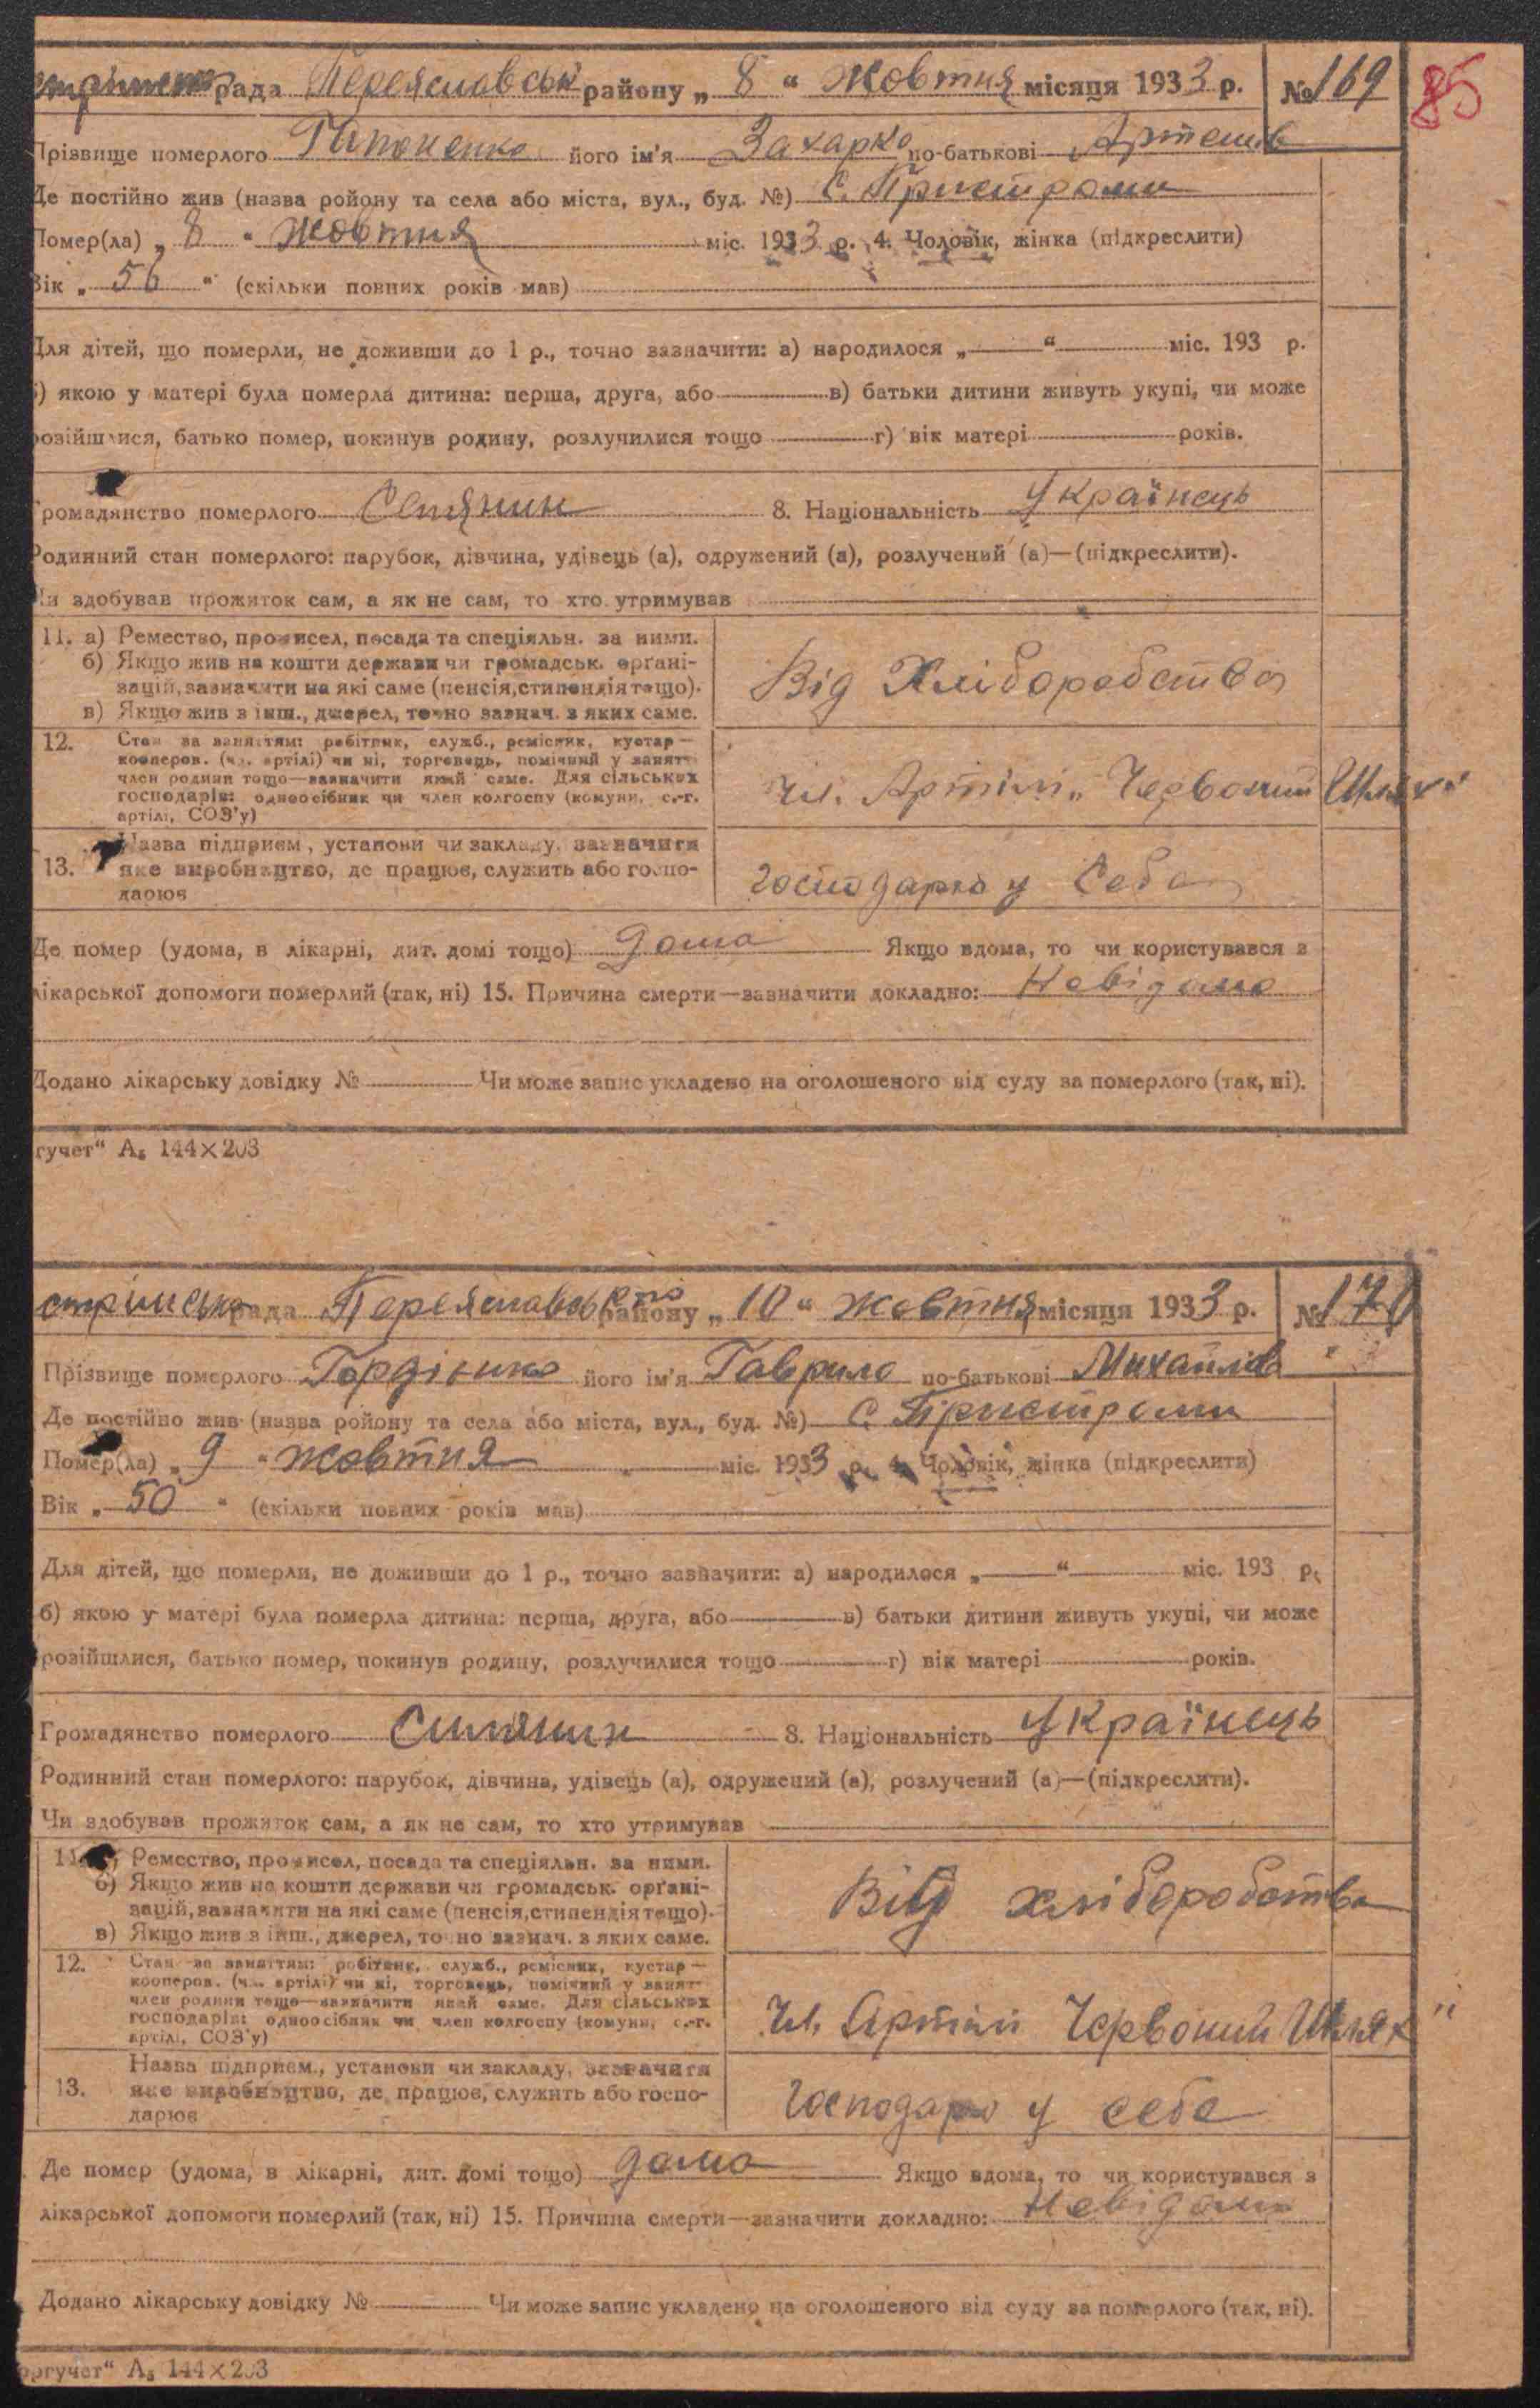 рада Переяславськ району „ 8 “ жовтня місяця 1933 р. № 169 85
Прізвище померлого Гапоненко його ім'я Захарко по-батькові Артемів
Де постійно жив (назва ройону та села або міста, вул., буд. №) с. Пристроми
Помер(ла) „ 8 “ жовтня міс. 1933 р. 4. Чоловік, жінка (підкреслити)
Вік „ 56 “ (скільки повних років мав)
Для дітей, що померли, не доживши до 1 р., точно зазначити: а) народилося „ “ міс. 193 р.
б) якою у матері була померла дитина: перша, друга, або в) батьки дитини живуть укупі, чи може
розійшлися, батько помер, покинув родину, розлучилися тощо г) вік матері років.
Громадянство померлого Селянин 8. Національність Українець
Родинний стан померлого: парубок, дівчина, удівець (а), одружений (а), розлучений (а)—(підкреслити).
Чи здобував прожиток сам, а як не сам, то хто утримував
11. а) Ремество, промисел, посада та спеціяльн. за ними.
б) Якщо жив на кошти держави чи громадськ. орґані-
зацій, зазначити на які саме (пенсія, стипендія тощо).
в) Якщо жив з інш., джерел, точно зазнач. з яких саме.
Від Хліборобства
12. Стан за заняттям: робітник, служб., ремісник, кустар—
кооперов. (чл. артілі) чи ні, торговець, помічний у занятт-
член родини тощо—зазначити який саме. Для сільських
господарів: одноосібник чи член колгоспу (комуни, с.-г.
артілі, СОЗ'у)
Чл. Артілі „Червоний Шлях“
13. Назва підприєм., установи чи закладу, зазначити
яке виробництво, де працює, служить або госпо-
дарює
Господарю у себе
Де помер (удома, в лікарні, дит. домі тощо) дома Якщо вдома, то чи користувався з
лікарської допомоги померлий (так, ні) 15. Причина смерти—зазначити докладно: Невідомо
Додано лікарську довідку № Чи може запис укладено на оголошеного від суду за померлого (так, ні).
гучет“ А₅ 144×203
рада Переяславського району „ 10 “ жовтня місяця 1933 р. № 170
Прізвище померлого Гордієнко його ім'я Гаврило по-батькові Михайлів
Де постійно жив (назва ройону та села або міста, вул., буд. №) с. Пристроми
Помер(ла) „ 9 “ жовтня міс. 1933 р. 4. Чоловік, жінка (підкреслити)
Вік „ 50 “ (скільки повних років мав)
Для дітей, що померли, не доживши до 1 р., точно зазначити: а) народилося „ “ міс. 193 р.
б) якою у матері була померла дитина: перша, друга, або в) батьки дитини живуть укупі, чи може
розійшлися, батько помер, покинув родину, розлучилися тощо г) вік матері років.
Громадянство померлого Силянин 8. Національність Українець
Родинний стан померлого: парубок, дівчина, удівець (а), одружений (а), розлучений (а)—(підкреслити).
Чи здобував прожиток сам, а як не сам, то хто утримував
11. а) Ремество, промисел, посада та спеціяльн. за ними.
б) Якщо жив на кошти держави чи громадськ. орґані-
зацій, зазначити на які саме (пенсія, стипендія тощо).
в) Якщо жив з інш., джерел, точно зазнач. з яких саме.
Від хліборобства
12. Стан за заняттям: робітник, служб., ремісник, кустар—
кооперов. (чл. артілі) чи ні, торговець, помічний у занятт-
член родини тощо—зазначити який саме. Для сільських
господарів: одноосібник чи член колгоспу (комуни, с.-г.
артілі, СОЗ'у)
Чл. Артілі Червоний Шлях“
13. Назва підприєм., установи чи закладу, зазначити
яке виробництво, де працює, служить або госпо-
дарює
Господарю у себе
Де помер (удома, в лікарні, дит. домі тощо) дома Якщо вдома, то чи користувався з
лікарської допомоги померлий (так, ні) 15. Причина смерти—зазначити докладно: Невідомо
Додано лікарську довідку № Чи може запис укладено на оголошеного від суду за померлого (так, ні).
ргучет“ А₅ 144×203